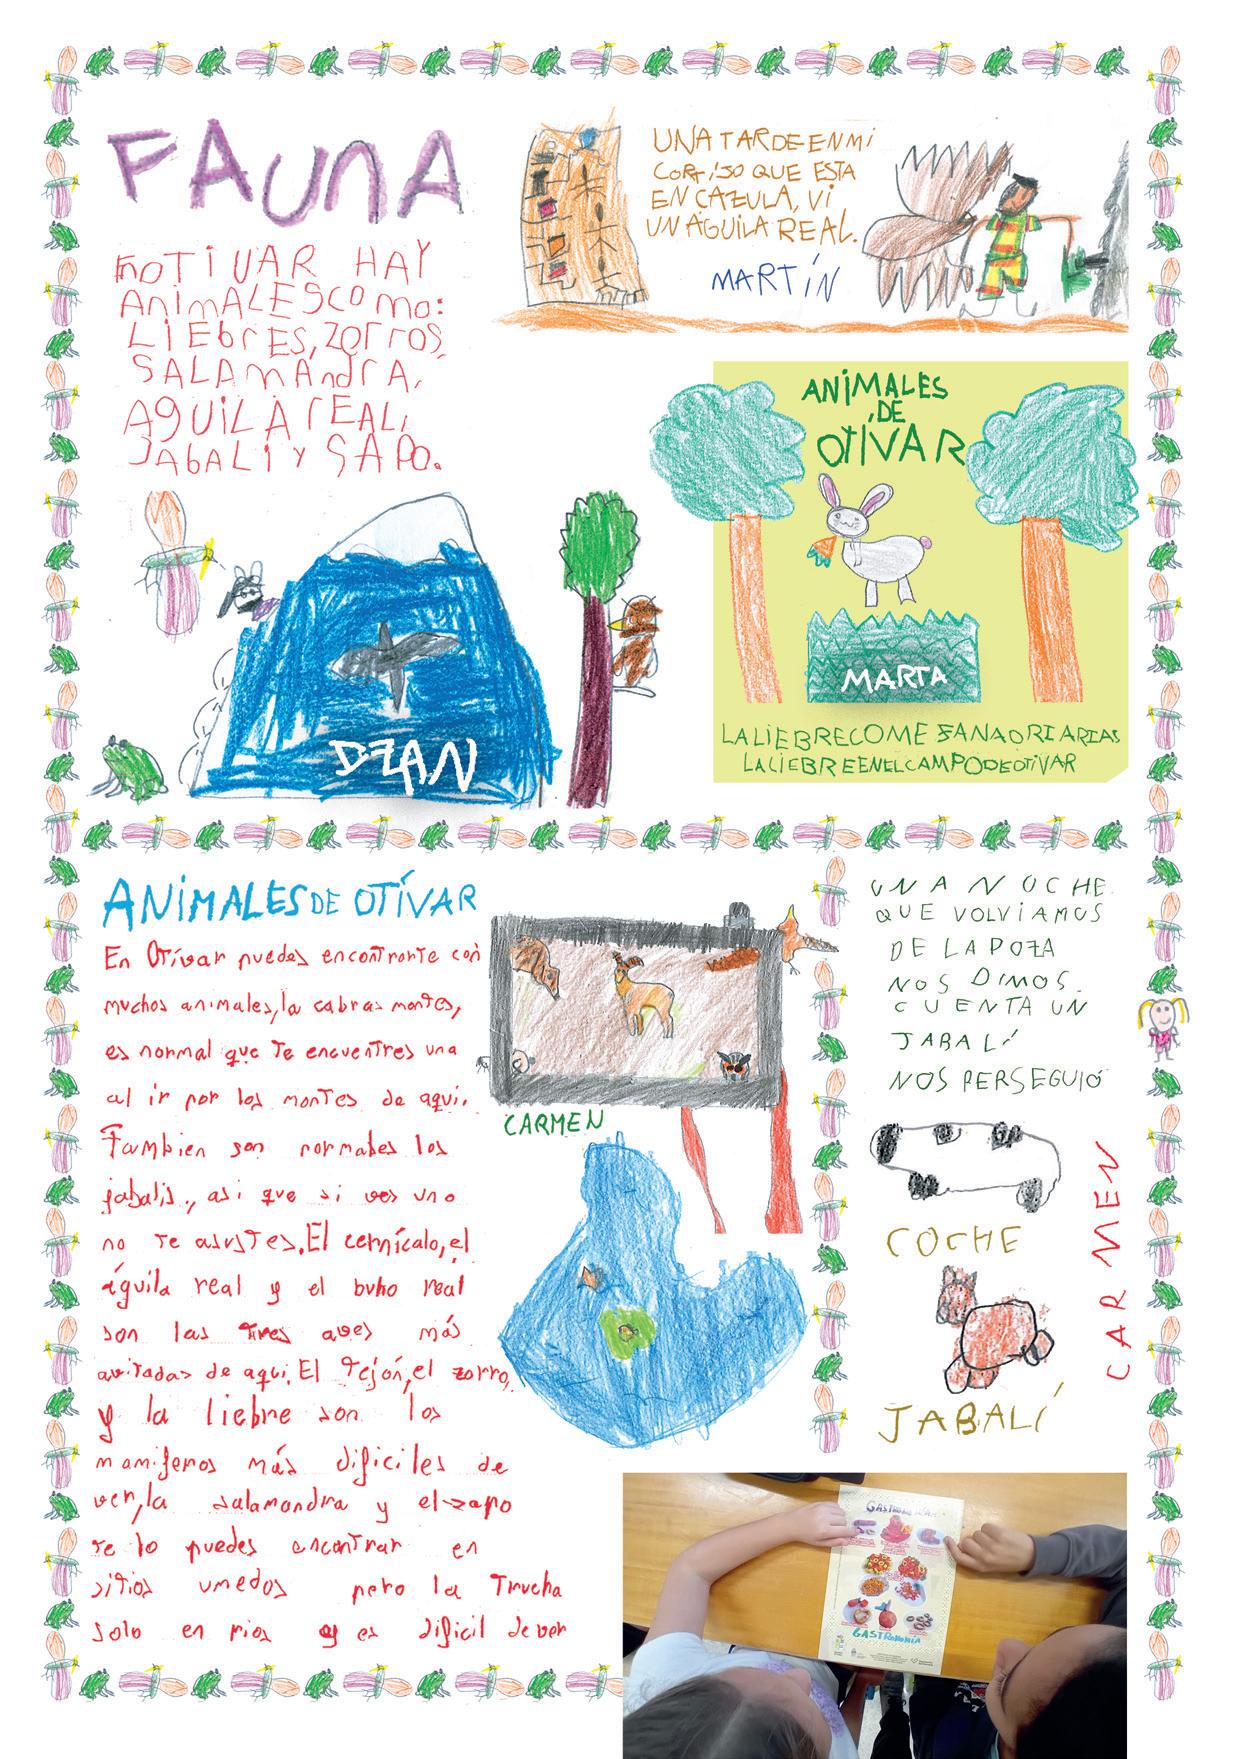 FAUNA
EN OTIVAR HAY
ANIMALES COMO:
LIEBRES, ZORROS,
SALAMANdRA,
AGUILA REAL,
JABALI Y SAPO.
DZAN
UNA TARDE EN MI
CORTIJO QUE ESTA
EN CAZULA, VI
UN ÁGUILA REAL.
MARTÍN
ANIMALES
DE
OTÍVAR
MARTA
LA LIEBRE COME ZANAORIARIAS
LA LIEBRE EN EL CAMPO DE OTIVAR
ANIMALES DE OTÍVAR
En Otívar puedes encontrarte con
muchos animales, la cabras montes,
es normal que te encuentres una
al ir por los montes de aqui.
Tambien son normales los
jabalis., asi que si ves uno
no te asustes. El cernícalo, el
águila real y el buho real
son las tres aves más
avitadas de aqui. El tejón, el zorro,
y la liebre son los
mamiferos más dificiles de
ver, la salamandra y el zapo
te lo puedes encontrar en
sitios umedos pero la Trucha
solo en rios y es dificil de ver
CARMEN
UNA NOCHE
QUE VOLVIAMOS
DE LA POZA
NOS DIMOS
CUENTA UN
JABALÍ
NOS PERSEGUIÓ
COCHE
JABALÍ
CARMEN
GASTRONOMÍA